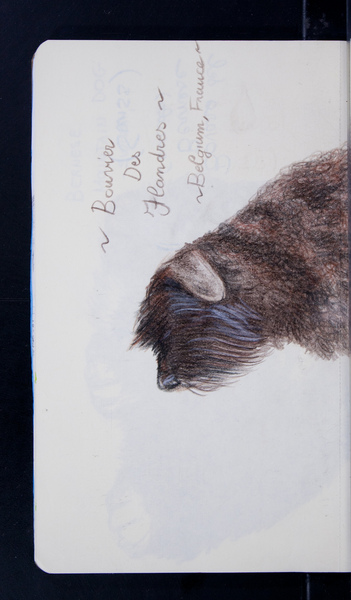 ~ Bouvier
Des
Flandres ~
~ Belgium, France ~